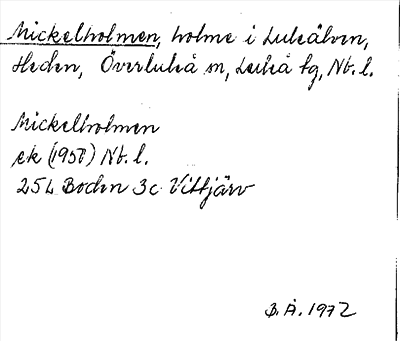 Mickelholmen, holme i Luleälven,
Heden, Överluleå sn, Luleå tg, Nb. l.
Mickelholmen
ek (1957) Nb. l.
25L Boden 3c Vittjärv
B. Å. 1972